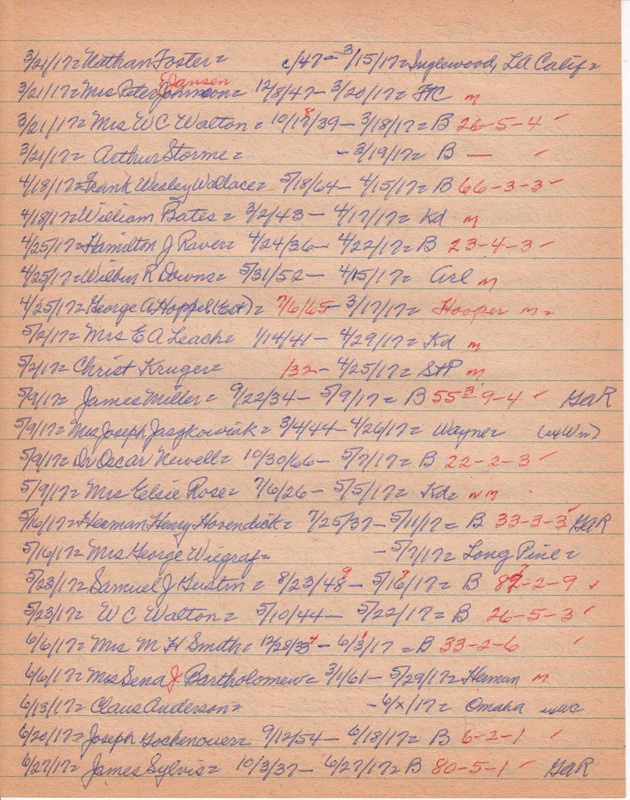 3/21/17= Nathan Foster= c/47- 3/15/17= Inglewood, LA Calif=
3/21/17= Mrs Peter Johnson= Jansen 12/8/47- 3/20/17= FC m
3/21/17= Mrs W C Walton= 10/18/39- 3/18/17= B 26-5-4 ✓
3/21/17= Arthur Storme= -3/19/17= B — ✓
4/18/17= Frank Wesley Wallace= 5/18/64- 4/15/17= B 66-3-3 ✓
4/18/17= William Bates= 3/2/43- 4/17/17= Kd m
4/25/17= Hamilton J Raver= 4/24/36- 4/22/17= B 23-4-3 ✓
4/25/17= Wilbur R Downs= 5/31/52- 4/15/17= Arl m
4/25/17= George A Hoppel (Est)= 7/6/65- 3/17/17= Hooper m=
5/2/17= Mrs E A Leach= 1/14/41- 4/29/17= Kd m
5/2/17= Christ Kruger= /32- 4/25/17= StP m
5/9/17= James Miller= 9/22/34- 5/9/17= B 55-9-4 ✓ GaR
5/9/17= Mrs Joseph Jaszkowiak= 3/4/44- 4/26/17= Wayne=
5/9/17= Dr Oscar Newell= 10/30/66- 5/7/17= B 22-2-3 ✓
5/9/17= Mrs Elsie Rose= 7/6/26- 5/5/17= Kd= nm
5/16/17= Herman Henry Hovendick= 7/25/37- 5/11/17= B 33-3-3 ✓ GaR
5/16/17= Mrs George Wiegraf= -5/7/17= Long Pine=
5/23/17= Samuel J Gustin= 8/23/48 9- 5/16/17= B 87-2-9 ✓
5/23/17= W C Walton= 5/10/44- 5/22/17= B 26-5-3 ✓
6/6/17= Mrs M H Smith= 12/28/33 4- 6/3/17= B 33-2-6 ✓
6/6/17= Mrs Sena J. Bartholomew= 3/1/61- 5/29/17= Herman m
6/13/17= Claus Anderson= -6/x/17= Omaha
6/20/17= Joseph Gochenouer= 9/12/54- 6/18/17= B 6-2-1 ✓
6/27/17= James Sylvis= 10/3/37- 6/27/17= B 80-5-1 ✓ GaR